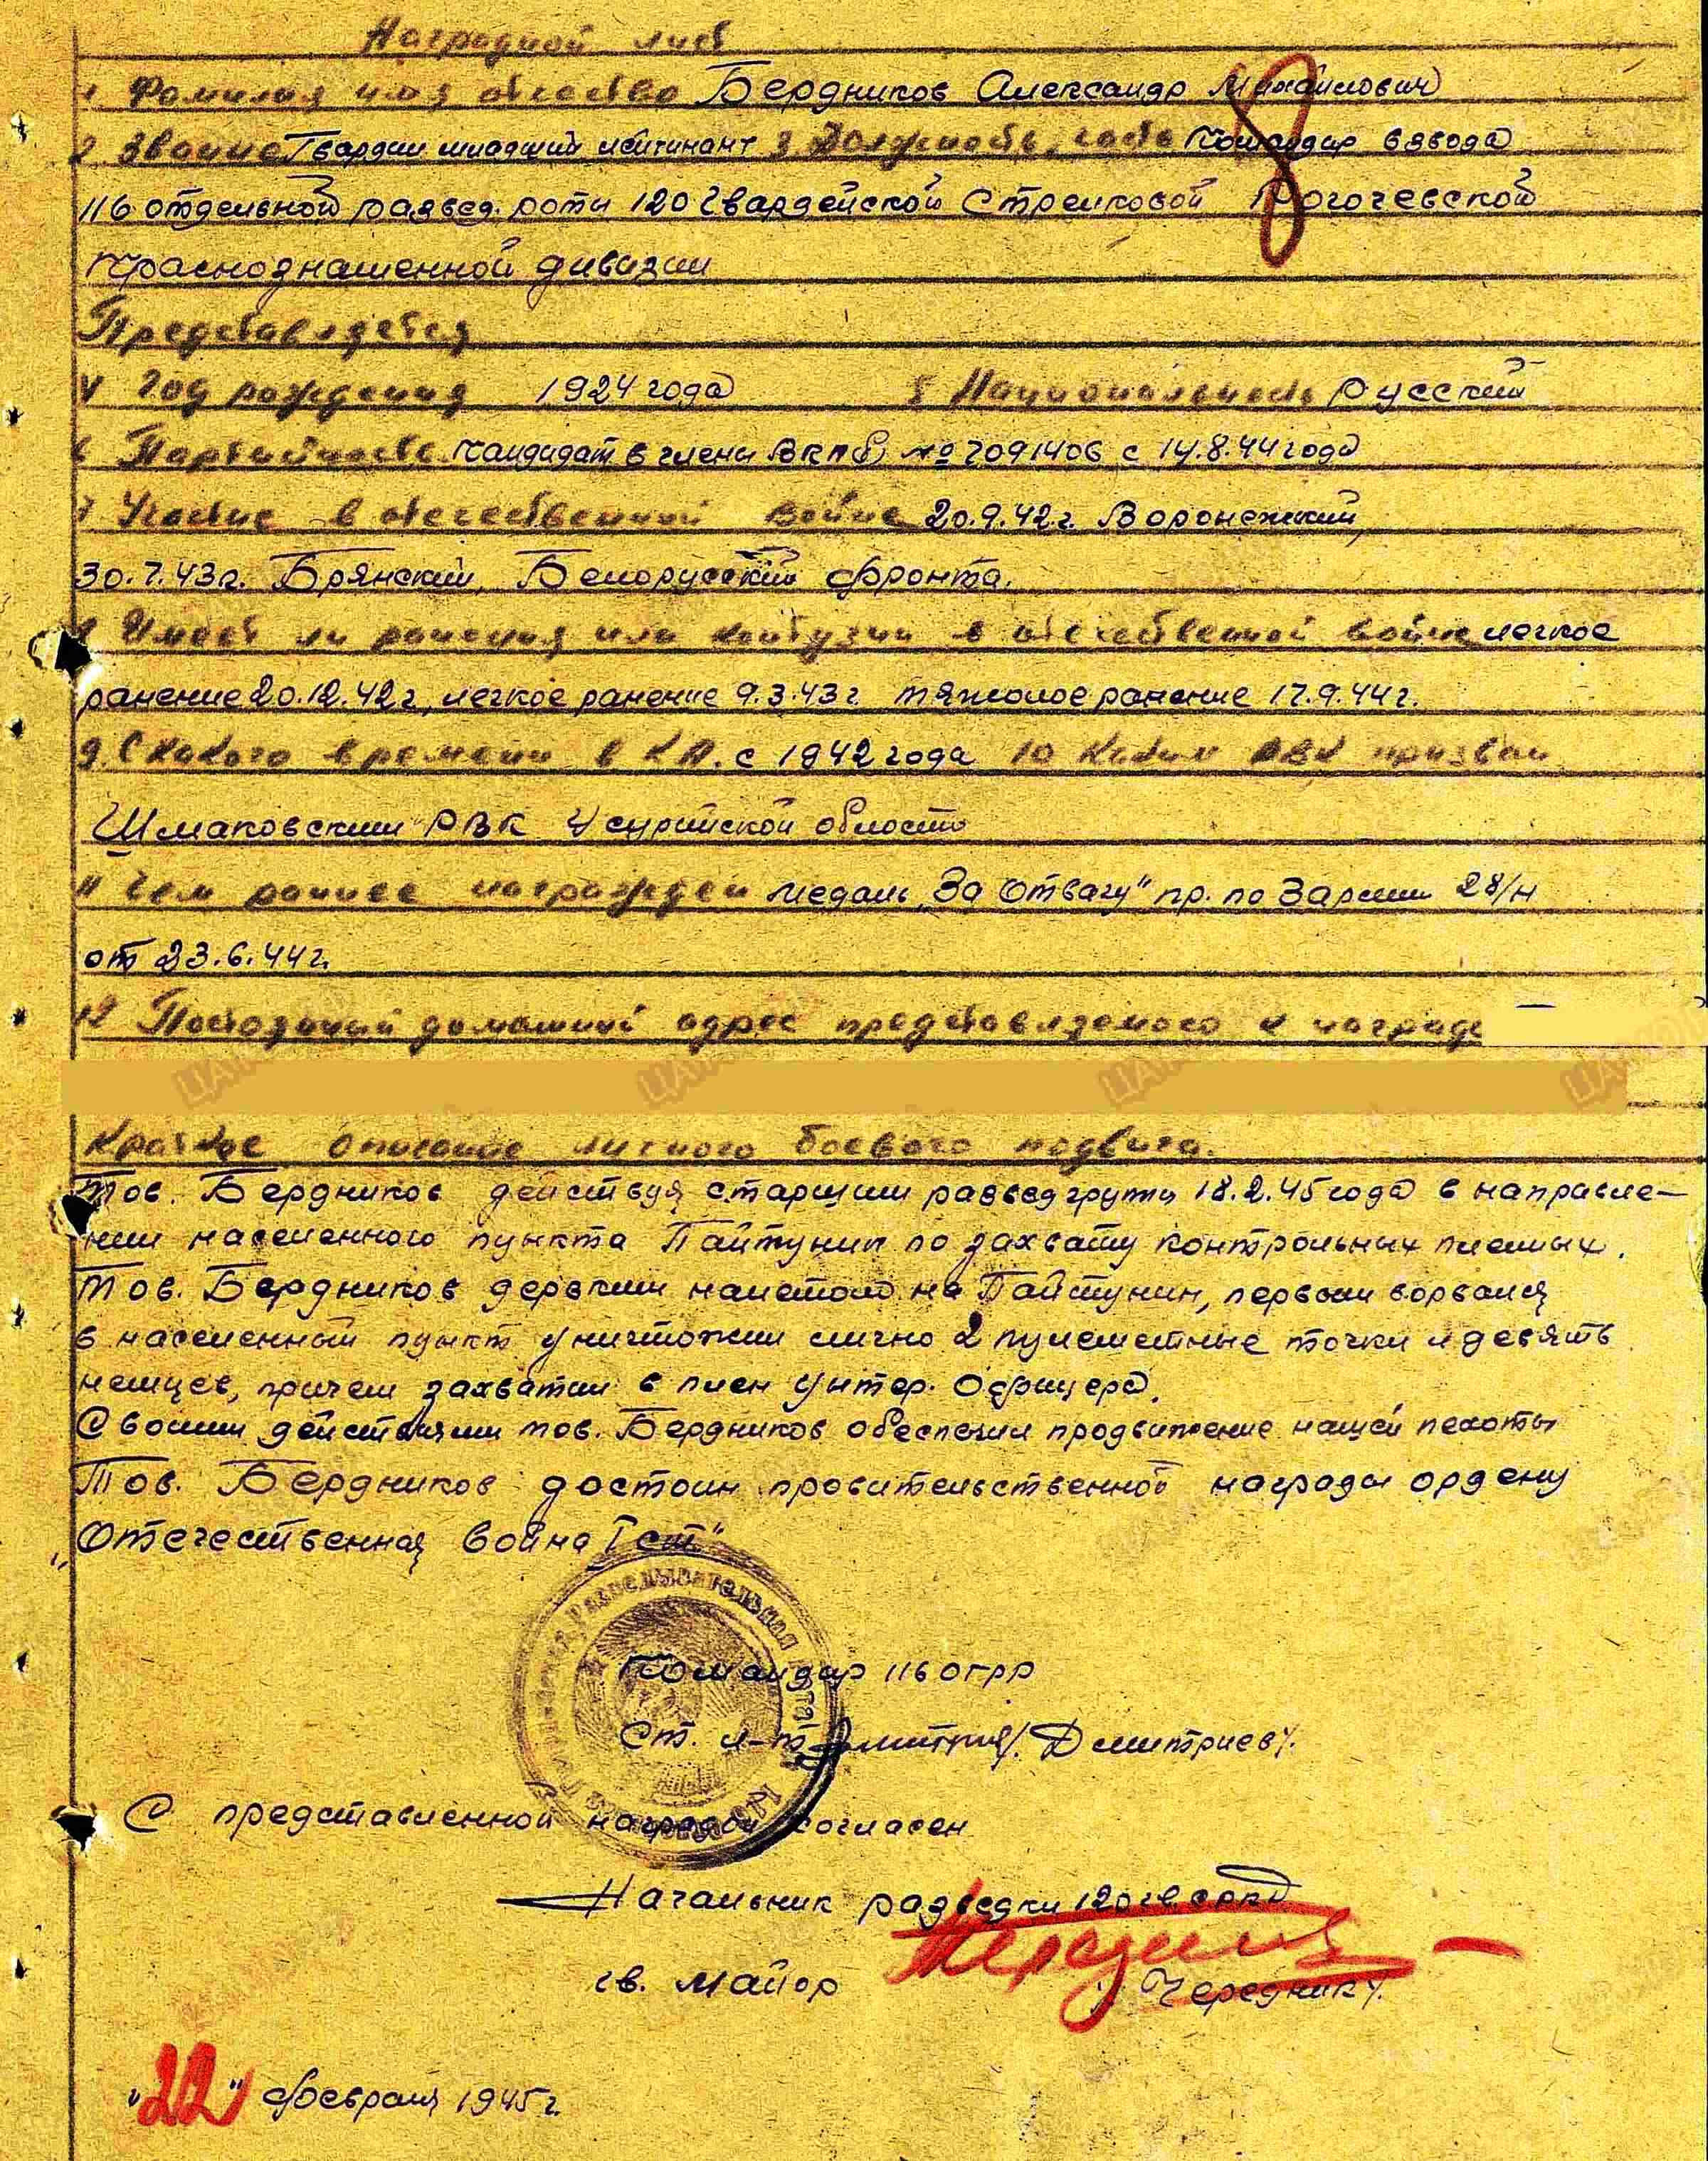 Наградной лист
1 Фамилия имя отчество Бердников Александр Михайлович
2 Звание Гвардии младший лейтинант 3 Должность, часть Командир взвода
116 отдельной развед. роты 120 Гвардейской Стрелковой Рогочевской
Краснознаменной дивизии
Представляется
4 Год рождения 1924 года 5 Национальность Русский
6 Партийность Кандидат в члены ВКПб, № 7091406 с 14.8.44 года
7 Участие в отечественной войне 20.9.42г. Воронежский,
30.7.43г. Брянский, Белорусский фронта.
8 Имеет ли ранения или контузии в отечественной войне легкое
ранение 20.12.42г, легкое ранение 9.3.43г. тяжолое ранение 17.9.44г.
9. С какого времени в КА. с 1942 года 10 Каким РВК призван
Шмаковским РВК Усурийской области
11 Чем раннее награжден медаль „За Отвагу" пр. по 3 армии 28/н
от 23.6.44г.
12 Постоянный домашний адрес представляемого к награде
Краткое описание личного боевого подвига.
Тов. Бердников действуя старшим разведгрупы 18.2.45 года в направле-
нии населенного пункта Пайтунин по захвату контрольных пленных.
Тов. Бердников дерзким налетом на Пайтунин, первым ворвался
в населенный пункт уничтожил лично 2 пулеметные точки и девять
немцев, причем захватил в плен унтер. Офицера.
Своими действиями тов. Бердников обеспечил продвижение нашей пехоты
Тов. Бердников достоин правительственной награды ордену
„Отечественная война I ст."
Разведывательная
Командир 116 ОГРР
Ст. л-т /Дмитриев/.
С представленной наградой согласен
Начальник разведки 120 гв. сркд
гв. майор /Чередник/.
"22" февраля 1945г.